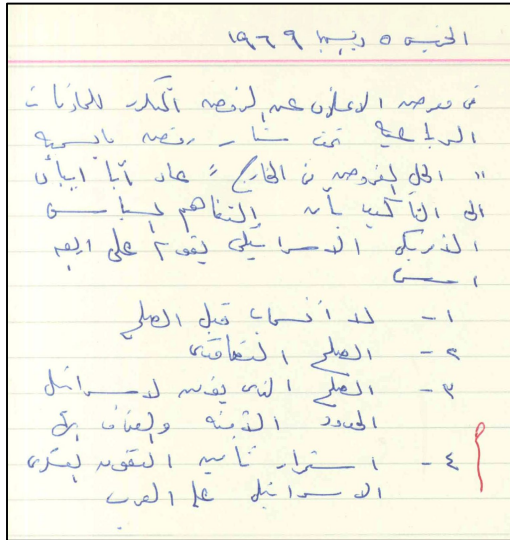 الخميس ٥ ١٩٦٩
فى معرض الاعلان عن الرفض المتكرر للمحادثات
الرباعية تحت ستار رفض ما يسميه
" الحل المفروض من الخارج " عاد أبا ايبان
الى التأكيد بأن التفاهم السياسى
الأمريكى الاسرائيلى يقوم على اربع
اسس
١ - لا انسحاب قبل الصلح
٢ - الصلح التعاقدى
٣ - الصلح الذى يؤمن لاسرائيل
الحدود الآمنة
٤ - استمرار تأمين التفوق العسكرى
الاسرائيلى على العرب